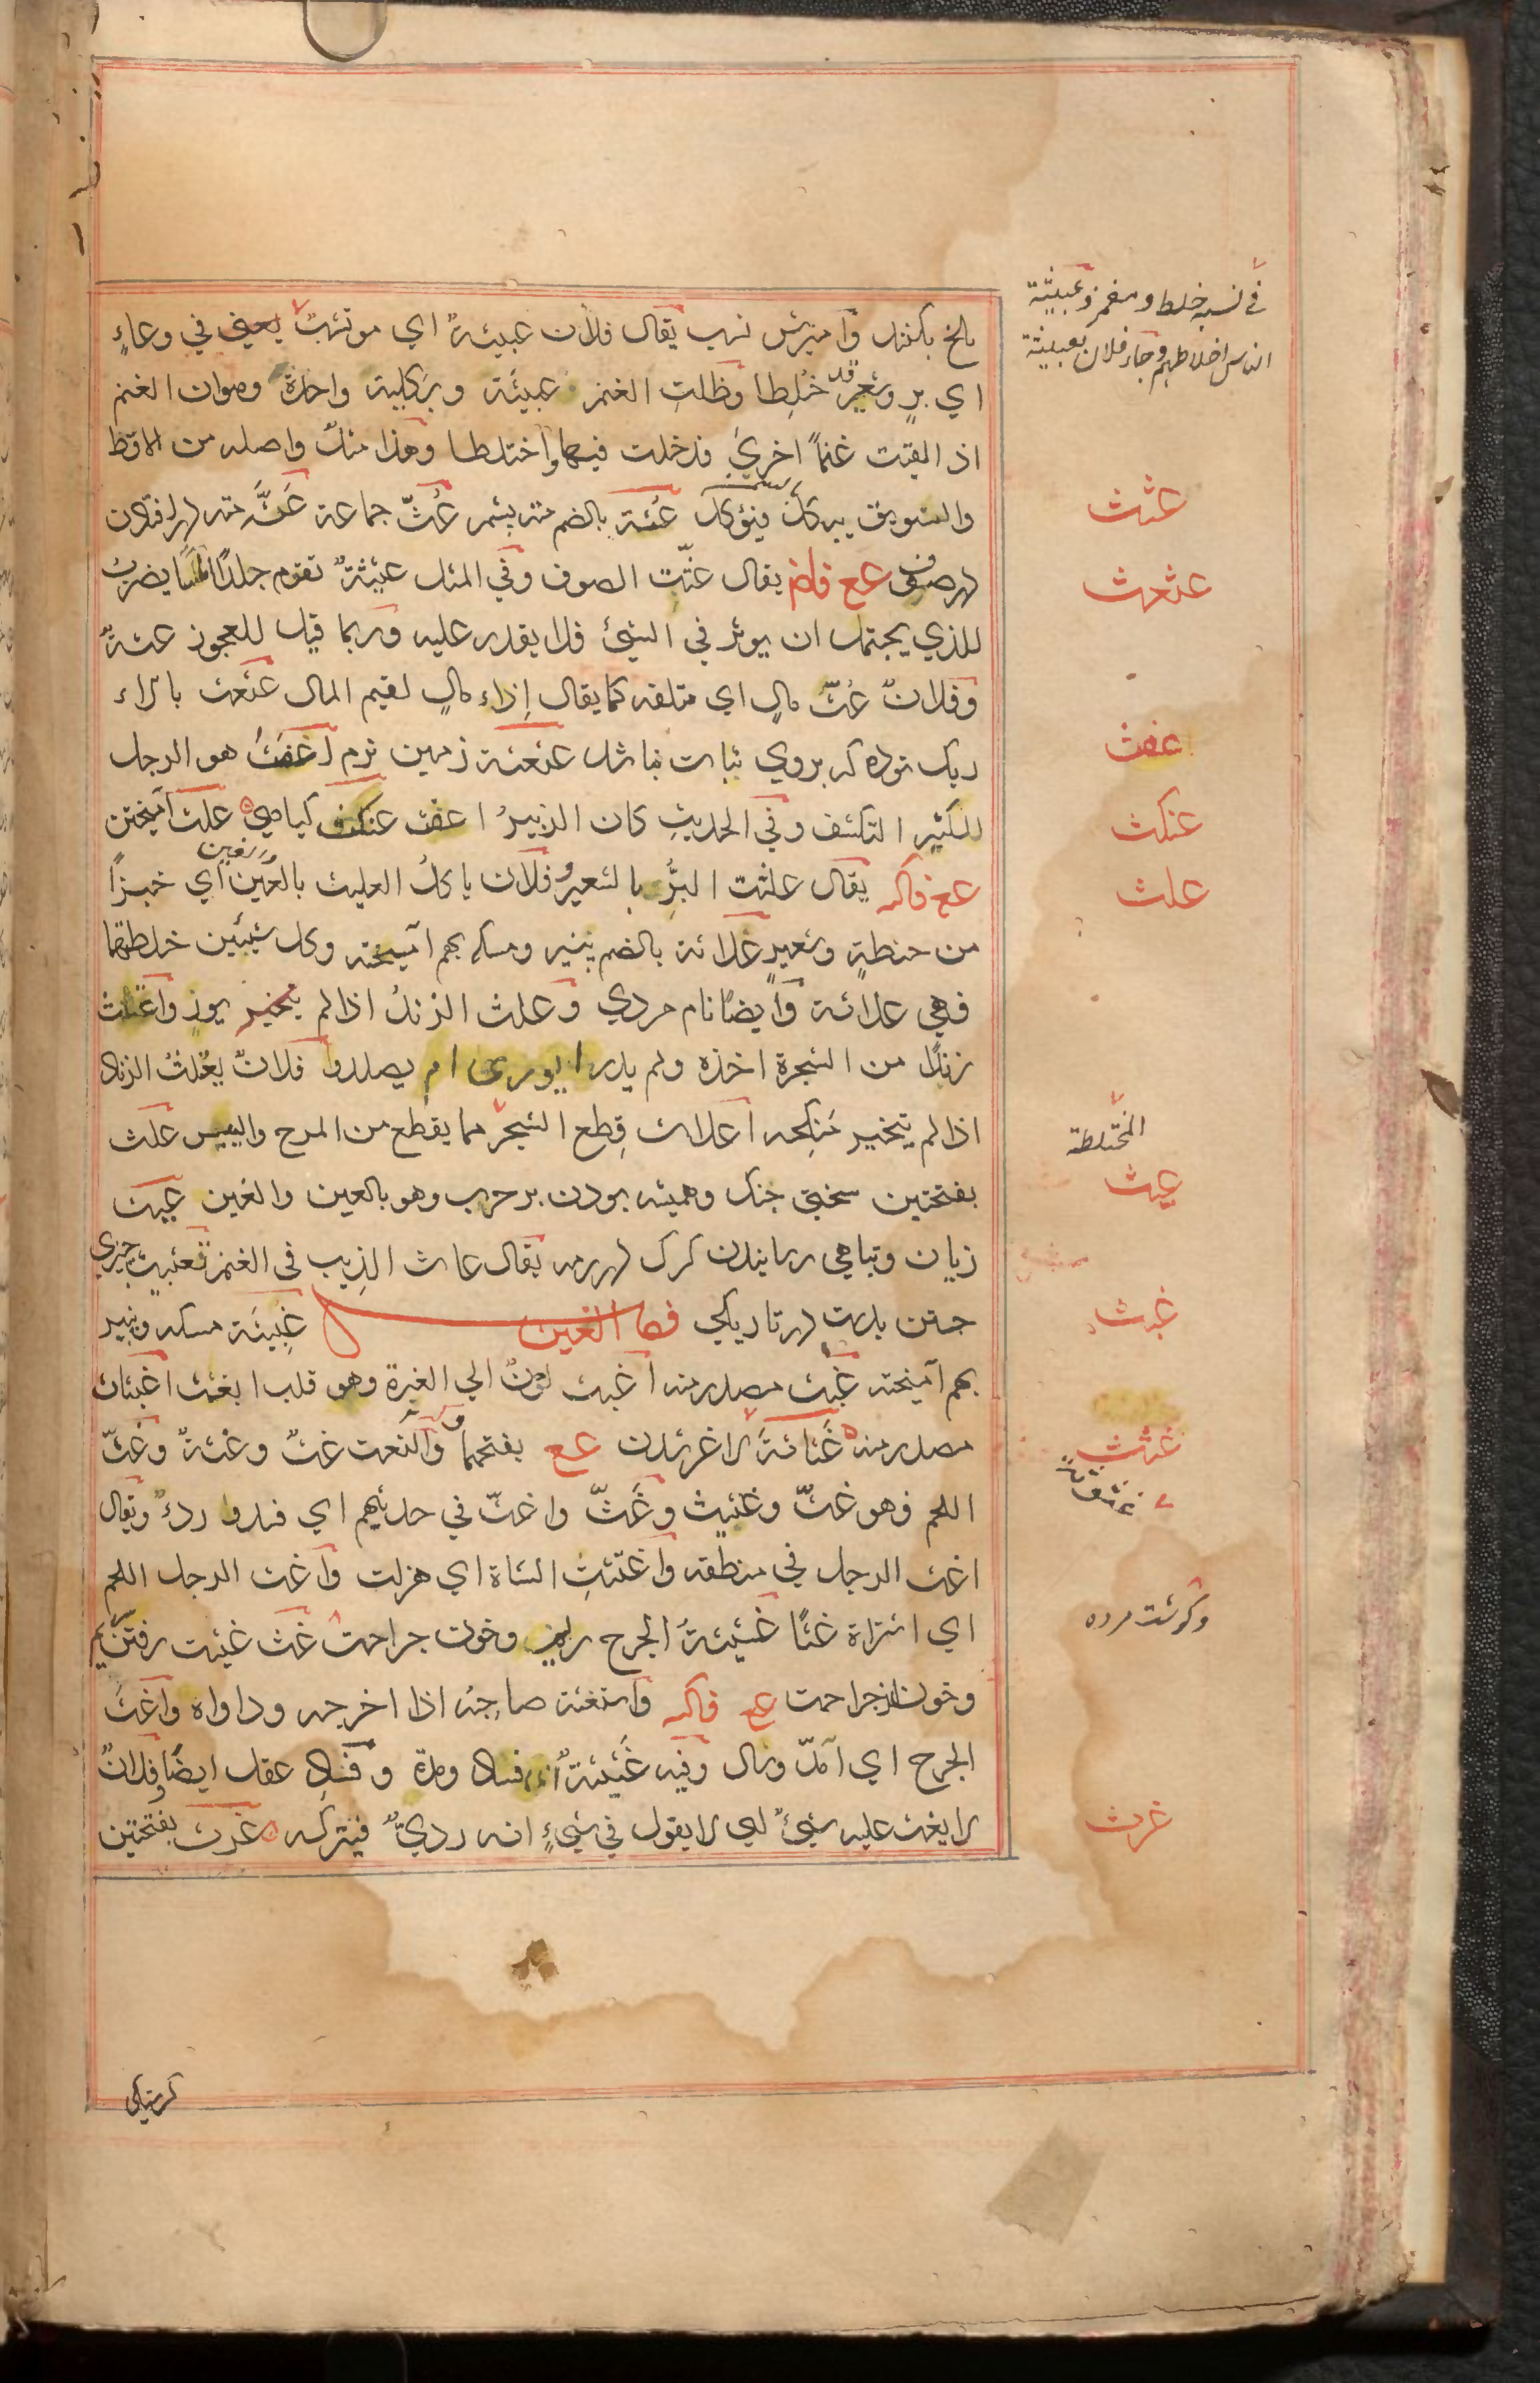 في نسبه خلط و مغمز وعبيثة
الناس اخلاطهم وجاء فلان بعبيثة
ملخ بكشك وآميزش نسب يقال فلان عبيثةٌ اي موتشب يعني في وعاءٍ
اي برٍ وشعيرٍ قد خُلِطا وظلتِ الغنم عبيثة وبكيلة واحدة وهو ان الغنم
اذ القيت غنماً اخري فدخلت فيها واختلطا وهذا مثلٌ واصله من الاقط
والسويق يبكل فيؤكل عُثة بالضم مته پشم عُثّ جماعة عَثَّ مته در افتادن
در صوف عع فاض يقال عثّت الصوف وفي المثل عثيثةٌ تقوم جلدًا املسًا يضرب
للذي يجتهد ان يوثر في الشيئ فلا يقدر عليه وربما قيل للعجوز عثةٌ
وفلانٌ عُثّ مالٍ اي متلفه كما يقال إزاء مالٍ لقيم المال عثعث بالراء
ريك توده كه بروي نبات نباشد عثعثة زمين نرم اعفث هو الرجل
الكثير التكشف وفي الحديث كان الزبيرُ اعفث عنكث كياهي علث آميختن
عع فاكه يقال علثت البرُّ بالشعير وفلان ياكلُ العليث بالعين والغين اي خبزًا
من حنطةٍ وشعيرٍ علاثة بالضم پنير ومسكه بهم آميخته وكل شيئين خلطتهما
فهي علاثة وايضًا نام مردي وعلث الزندُ اذا لم يورِ واعتلث
زندًا من الشجرة اخذه ولم يدر ايوري ام يصلد وفلانٌ يعتلثُ الزناد
اذا لم يتخير منكحه اعلاث قِطع الشجر مما يقطع من المرخ واليبيس علث
بفتحتين سختي جنك وهميشه بودن بر حرب وهو بالعين والغين عيث
زيان وتباهي رسانيدن كرك در رمه يقال عاث الذيب في الغنم تعييث چيزي
جستن بدست در تاريكي فصل الغين غبيثة مسكه وپنير
بهم آميخته غبث مصدر منه اغبث لونٌ الي الغبرة وهو قلب ابغث اغبثاث
مصدر منه غثاثة لاغر شدن عع بفتحهما والنعت غثٌ وغثةٌ وغثّ
اللحم فهو غثٌّ وغثيث وغثّ واغثّ في حديثهم اي فسد وردءٌ ويقال
اغث الرجل في منطقه واغثّتِ الشاة اي هزلت واغث الرجل اللحم
اي اشتراه غثًا غثيثةُ الجرح ريم وخون جراحت غث غثيث رفتن ريم
وخون از جراحت عع فاكه واستغثه صاحبُه اذا اخرجه وداواه واغثَّ
الجرح اي امدّ وسال وفيه غثيثةٌ اي فساد ومدة وفساد عقل ايضًا وفلانٌ
لا يغث عليه شيئٌ اي لا يقول في شيءٍ انه رديٌّ فيتركه غرث بفتحتين
عثث
عثعث
عفث
عنكث
علث
المختلطة
عيث
غبث
غثث
وكوشت مرده
غرث